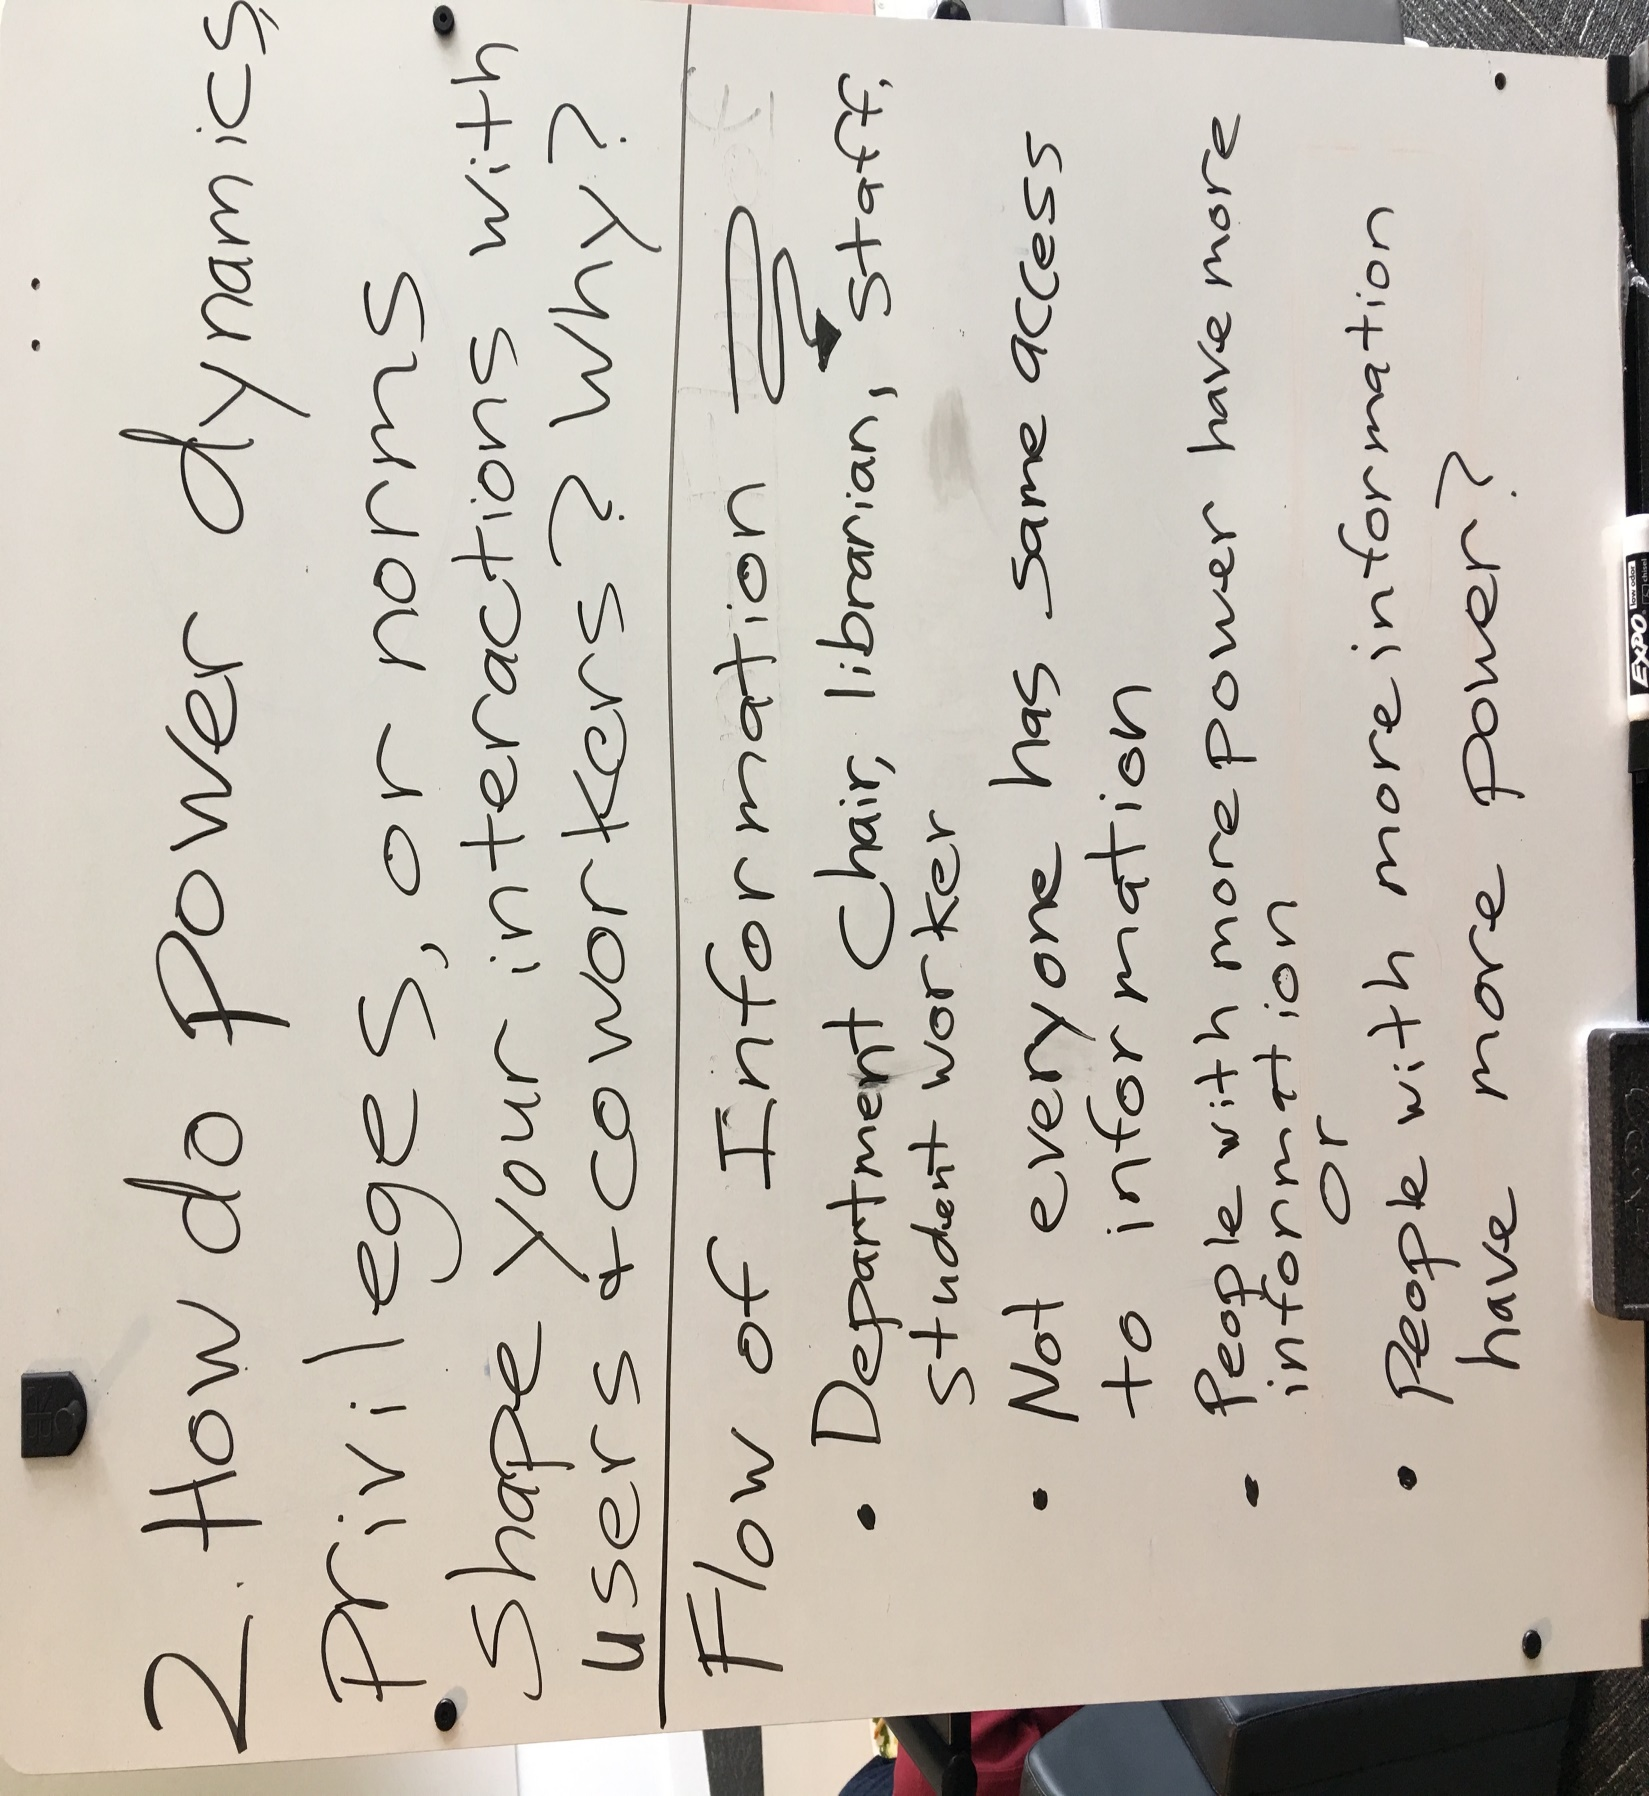 2. How do power dynamics,
privileges, or norms
shape your interactions with
users + coworkers? Why?
Flow of Information
• Department Chair, librarian, staff,
student worker
• Not everyone has same access
to information
• People with more power have more
information
or
• People with more information
have more power?
EXPO
low odor
chisel